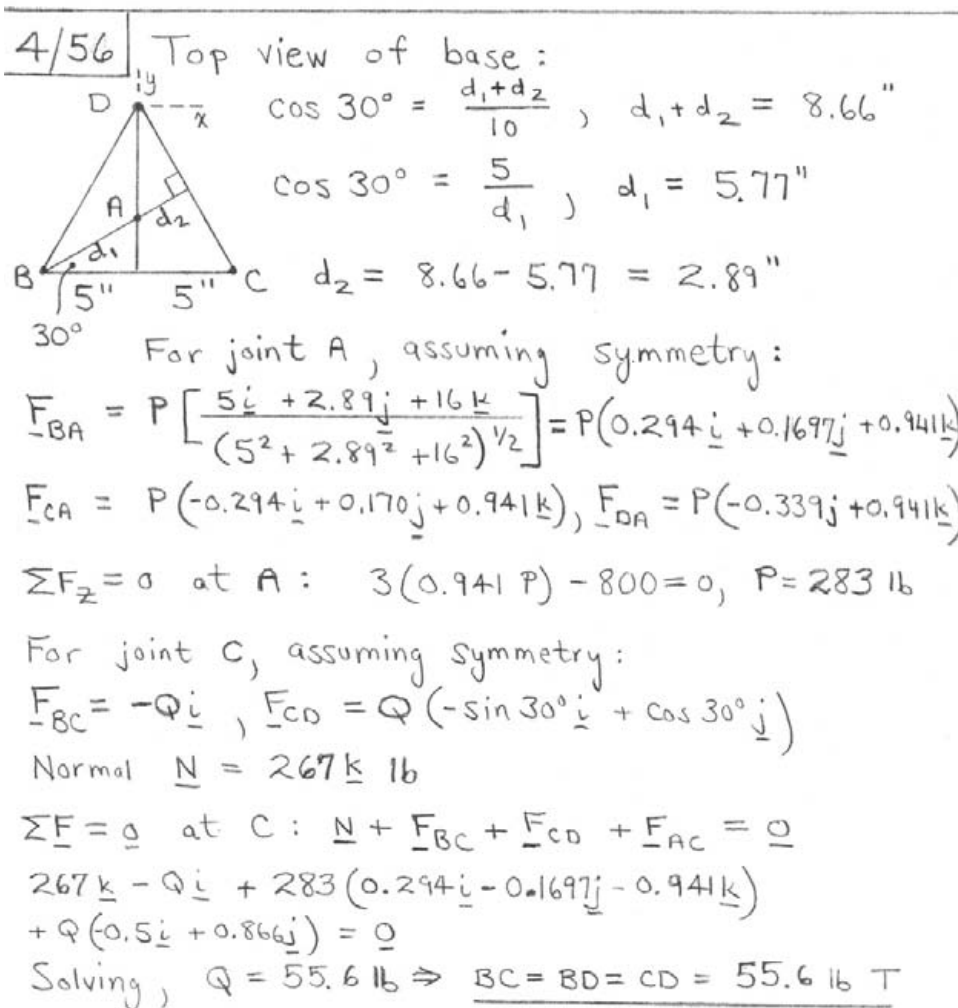 4/56 Top view of base :
y
D
x
cos 30° = (d₁+d₂)/10 , d₁+d₂ = 8.66"
cos 30° = 5/d₁ , d₁ = 5.77"
A
d₂
d₁
B 5" 5" C d₂ = 8.66-5.77 = 2.89"
30°
For joint A, assuming symmetry :
F_BA = P [ (5i + 2.89j + 16k) / (5² + 2.89² + 16²)^(1/2) ] = P(0.294i + 0.1697j + 0.941k)
F_CA = P(-0.294i + 0.170j + 0.941k), F_DA = P(-0.339j + 0.941k)
ΣF_z = 0 at A : 3(0.941 P) - 800 = 0, P = 283 lb
For joint C, assuming symmetry :
F_BC = -Qi , F_CD = Q(-sin 30° i + cos 30° j)
Normal N = 267k lb
ΣF = 0 at C : N + F_BC + F_CD + F_AC = 0
267k - Qi + 283(0.294i - 0.1697j - 0.941k)
+ Q(-0.5i + 0.866j) = 0
Solving, Q = 55.6 lb ⇒ BC = BD = CD = 55.6 lb T